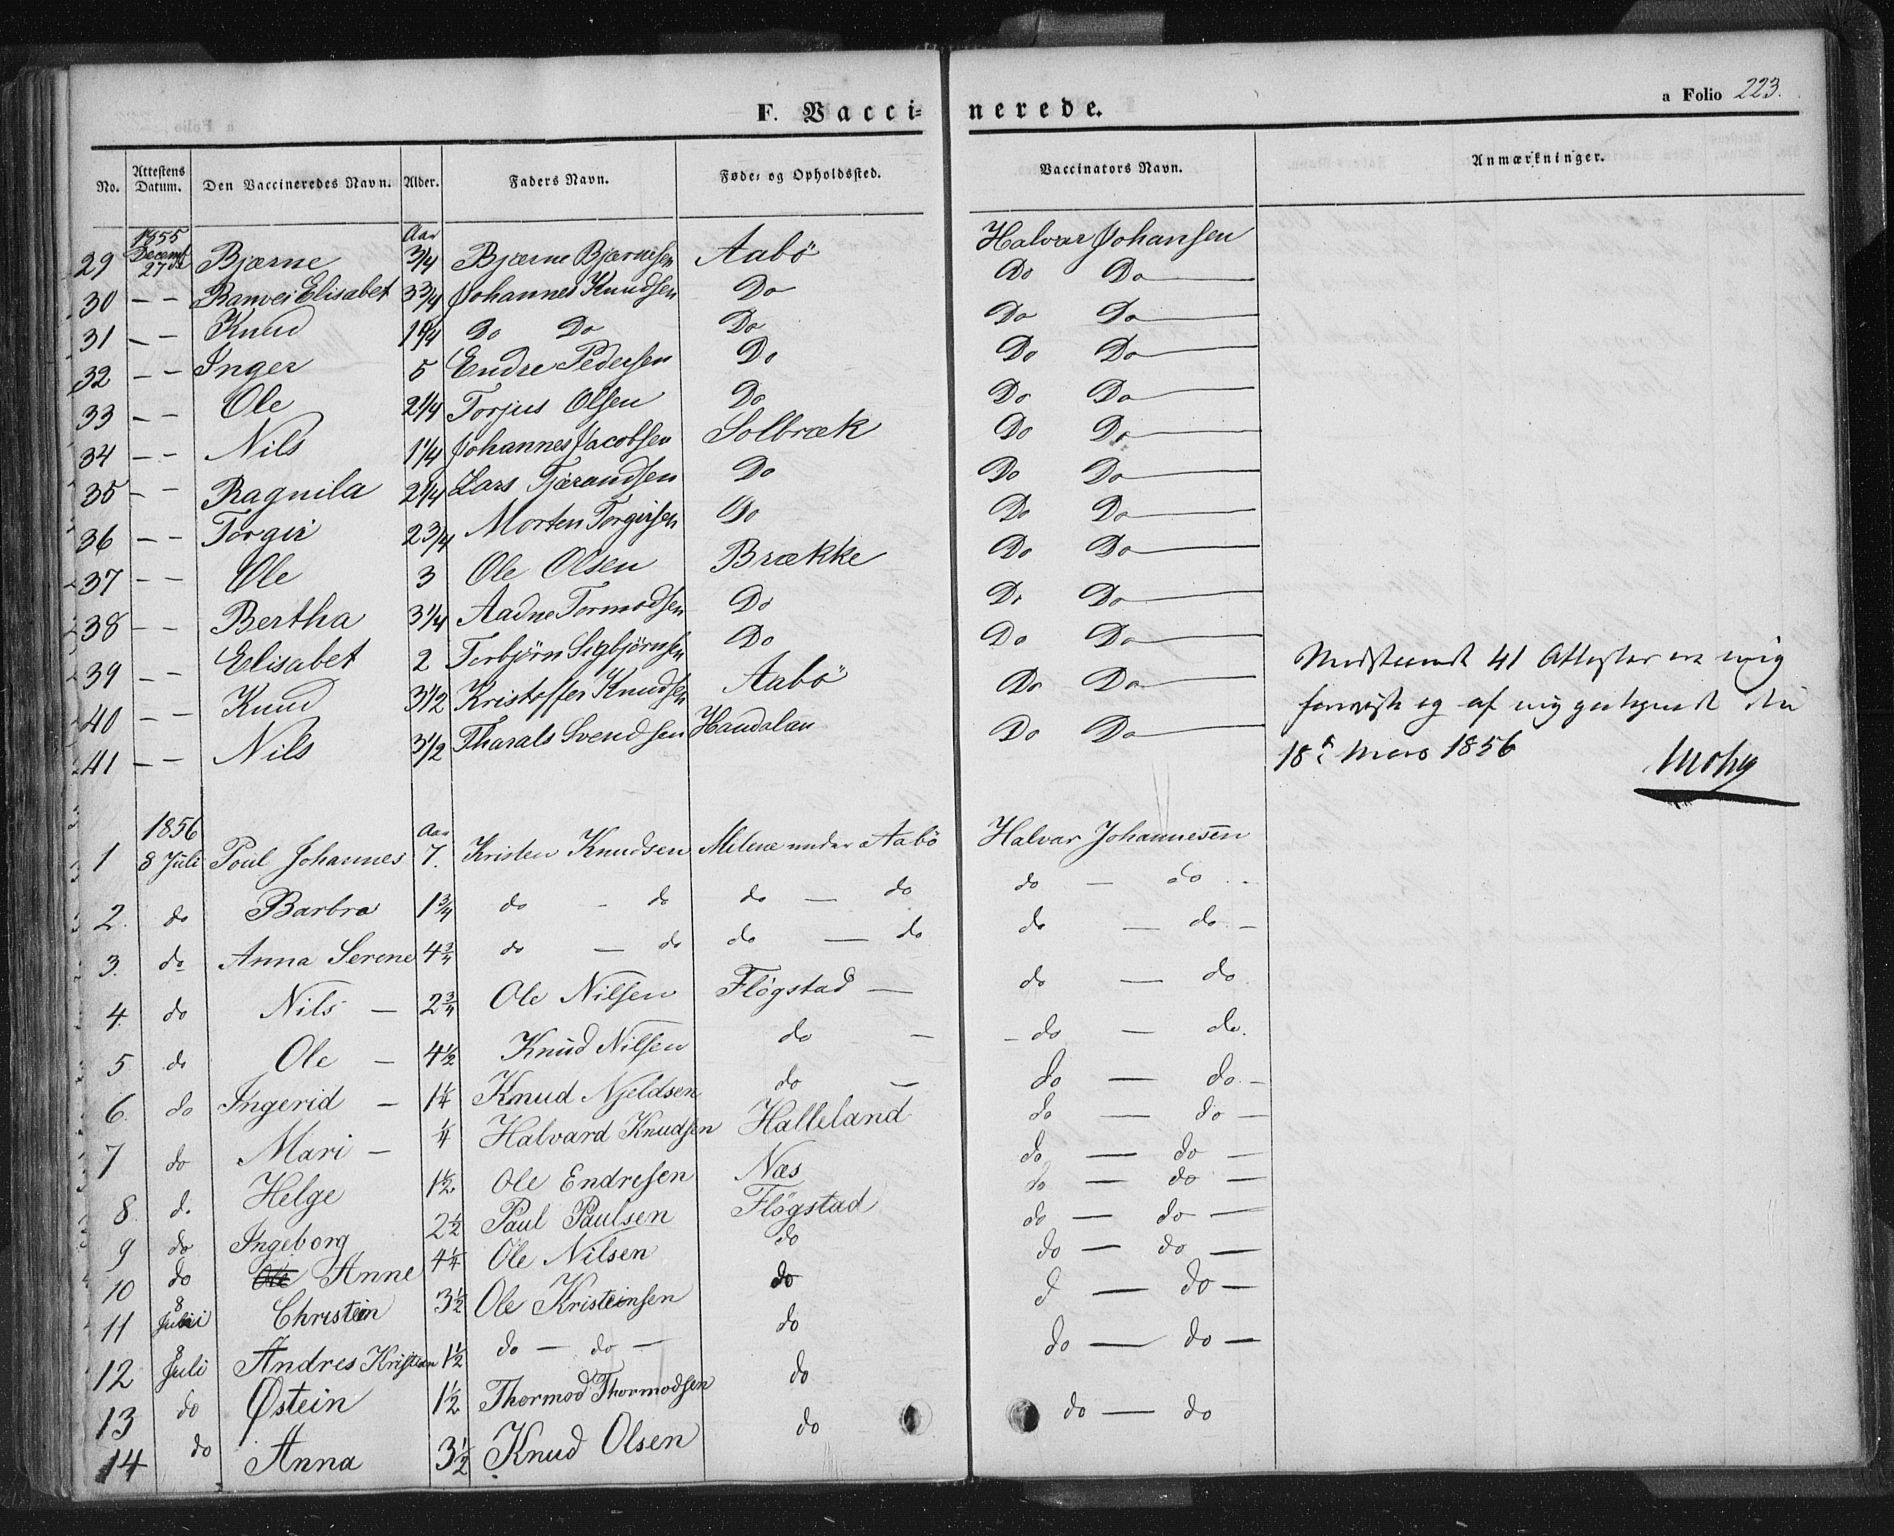 F. Vaccinerede.
a Folio 223.
No. | Attestens Datum. | Den Vaccineredes Navn. | Alder. | Faders Navn. | Føde- og Opholdssted. | Vaccinators Navn. | Anmærkninger.
29 | 1855 Decemb 27de | Bjærne | Aar 3/4 | Bjærne Bjærnesen | Aabö | Halvar Johansen
30 | – – | Ranvei Elisabet | 3 3/4 | Johannes Knudsen | Do | Do Do
31 | – – | Knud | 1 1/4 | Do Do | Do | Do Do
32 | – – | Inger | 5 | Endre Pedersen | Do | Do Do
33 | – – | Ole | 2 1/4 | Torjus Olsen | Do | Do Do
34 | – – | Nils | 1 1/4 | Johannes Jacobsen | Solbræk | Do Do
35 | – – | Ragnila | 2 1/4 | Lars Tjærandsen | Do | Do Do
36 | – – | Torgir | 2 3/4 | Morten Torgirsen | Do | Do Do
37 | – – | Ole | 3 | Ole Olsen | Brække | Do Do
38 | – – | Bertha | 3 1/4 | Aadne Tormodsen | Do | Do Do
39 | – – | Elisabet | 2 | Torbjörn Sigbjörnsen | Do | Do Do
40 | – – | Knud | 3 1/2 | Kristoffer Knudsen | Aabö | Do Do
41 | – – | Nils | 3 1/2 | Tharals Svendsen | Haudalan | Do Do
41 Attester ere mig
foreviste og af mig godkjendt den
18de Mars 1856
1 | 1856 8 Juli | Poul Johannes | Aar 7. | Kristen Knudsen | Melene under Aabö | Halvar Johannesen
2. | do | Barbra | 1 3/4 | do – do | do – do | do – do
3. | do | Anna Serene | 4 3/4 | do – do | do – do | do – do –
4. | do | Nils – | 2 3/4 | Ole Nilsen | Flögstad – | do – do
5 | do | Ole – | 4 1/2 | Knud Nilsen | do – | do – do.
6. | do | Ingerid – | 1 1/4 | Knud Njeldsen | do – | do – do –
7 | do | Mari – | 1/4 | Halvard Knudsen | Halleland | do – do –
8 | do | Helge | 1 1/2 | Ole Endresen | Næs | do – do –
9 | do | Ingeborg | 2 1/2 | Paul Paulsen | Flögstad | do – do –
10 | do | Ole Anne | 4 1/4 | Ole Nilsen | do | do – do –
11 | 8 Juli | Christein | 3 1/2 | Ole Kristeinsen | do | do – do –
12 | 8 Juli | Andres Kristian | 1 1/2 | do – do – | do | d – do –
13 | do | Østein | 1 1/2 | Thormod Thormodsen | do | do – do –
14 | do | Anna | 3 1/2 | Knud Olsen | do | do – do